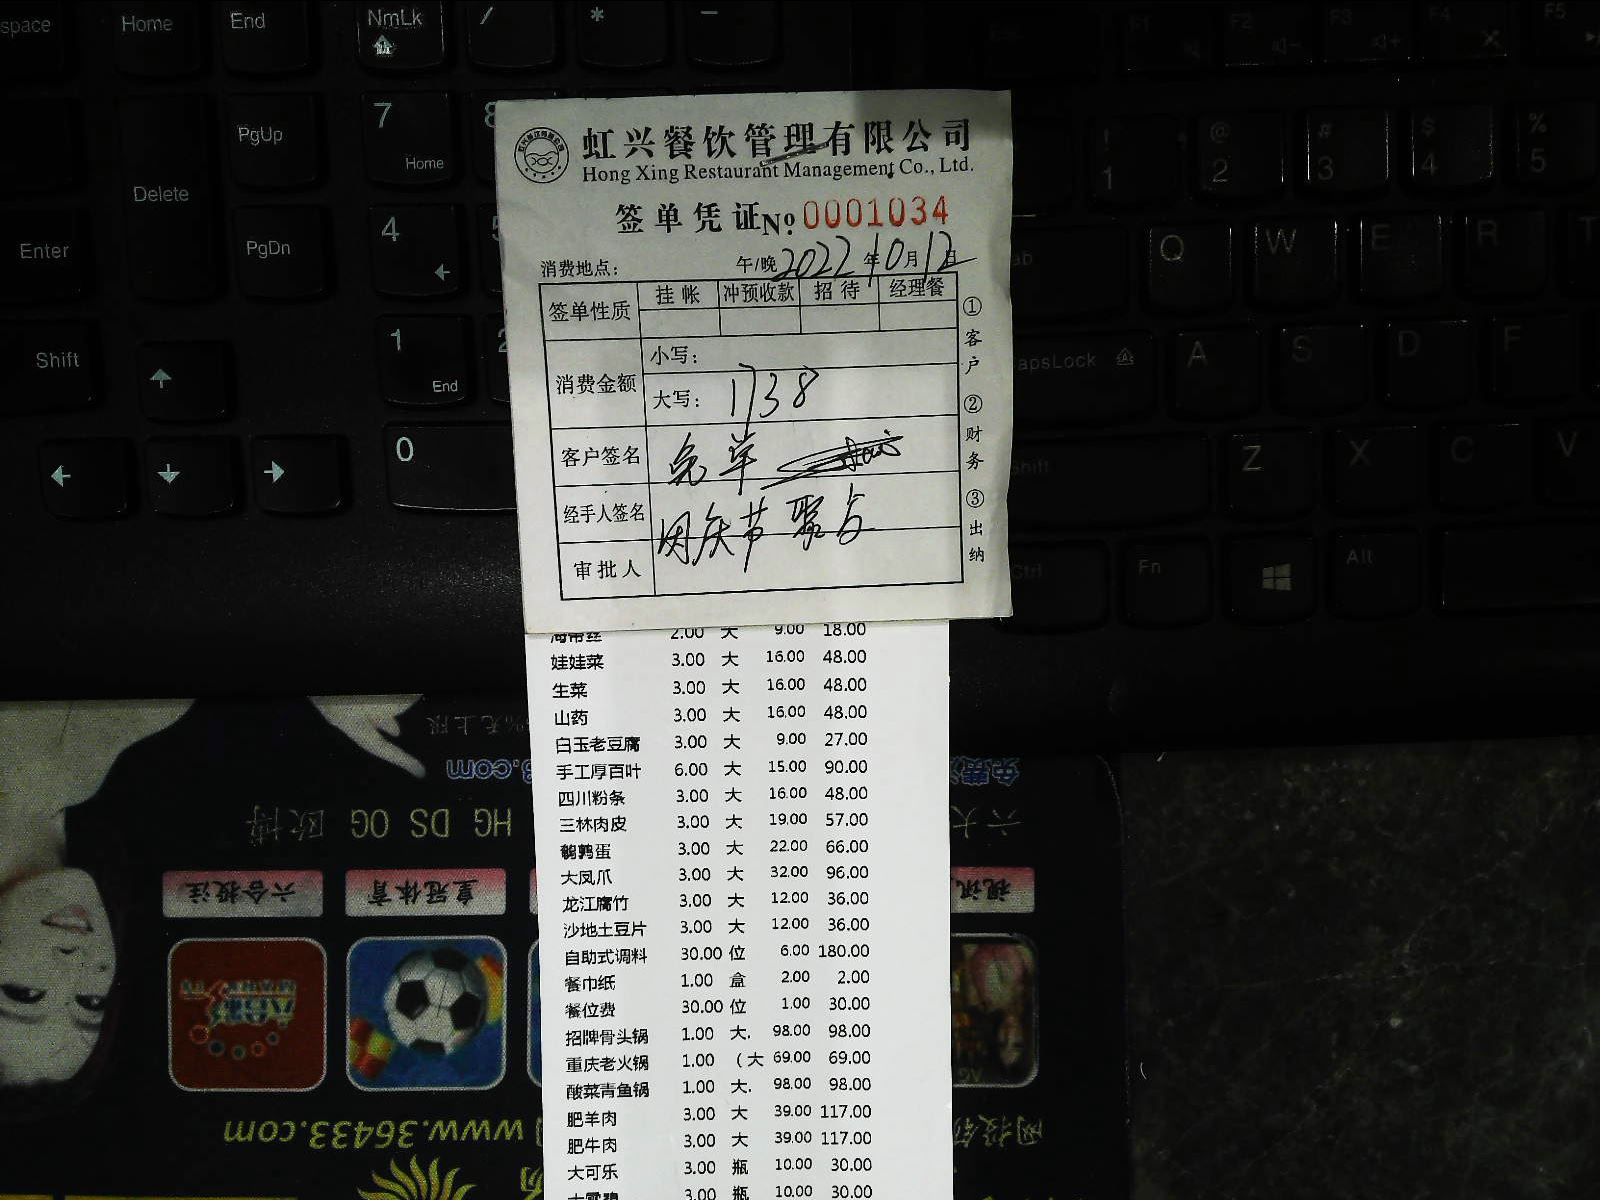 虹兴餐饮管理有限公司
Hong Xing Restaurant Management Co., Ltd.
签单凭证 No. 0001034
消费地点： 午/晚 2022年10月12日
签单性质 挂帐 冲预收款 招待 经理餐
消费金额 小写：
大写： 1738
客户签名 免单
经手人签名
国庆节聚与
审批人
①客户 ②财务 ③出纳
海带丝 2.00 大 9.00 18.00
娃娃菜 3.00 大 16.00 48.00
生菜 3.00 大 16.00 48.00
山药 3.00 大 16.00 48.00
白玉老豆腐 3.00 大 9.00 27.00
手工厚百叶 6.00 大 15.00 90.00
四川粉条 3.00 大 16.00 48.00
三林肉皮 3.00 大 19.00 57.00
鹌鹑蛋 3.00 大 22.00 66.00
大凤爪 3.00 大 32.00 96.00
龙江腐竹 3.00 大 12.00 36.00
沙地土豆片 3.00 大 12.00 36.00
自助式调料 30.00 位 6.00 180.00
餐巾纸 1.00 盒 2.00 2.00
餐位费 30.00 位 1.00 30.00
招牌骨头锅 1.00 大. 98.00 98.00
重庆老火锅 1.00 （大 69.00 69.00
酸菜青鱼锅 1.00 大. 98.00 98.00
肥羊肉 3.00 大 39.00 117.00
肥牛肉 3.00 大 39.00 117.00
大可乐 3.00 瓶 10.00 30.00
大雪碧 3.00 瓶 10.00 30.00
space Home End NmLk / * -
Delete PgUp 7 Home 8
Enter PgDn 4 5
Shift 1 End 2
0
F1 F2 F3 F4 F5
! 1 @ 2 # 3 $ 4 % 5
Q W E R T
CapsLock A S D F
Shift Z X C V
Ctrl Fn Alt
%无上限
.com
免费
HG DS OG 欧博
六大
六合投注 皇冠体育 视讯
AG
www.36433.com
网投领